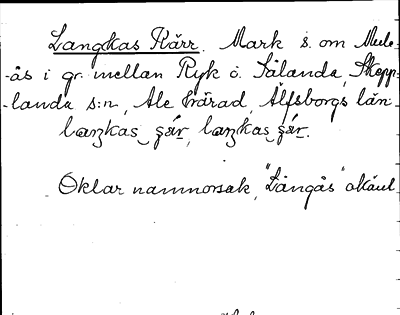 Langkas Kärr. Mark s. om Mule-
-ås i gr. mellan Ryk o. Sålanda, Skepp-
-landa s:n, Ale härad, Älfsborgs län.
Oklar namnorsak, "Långås" okänt